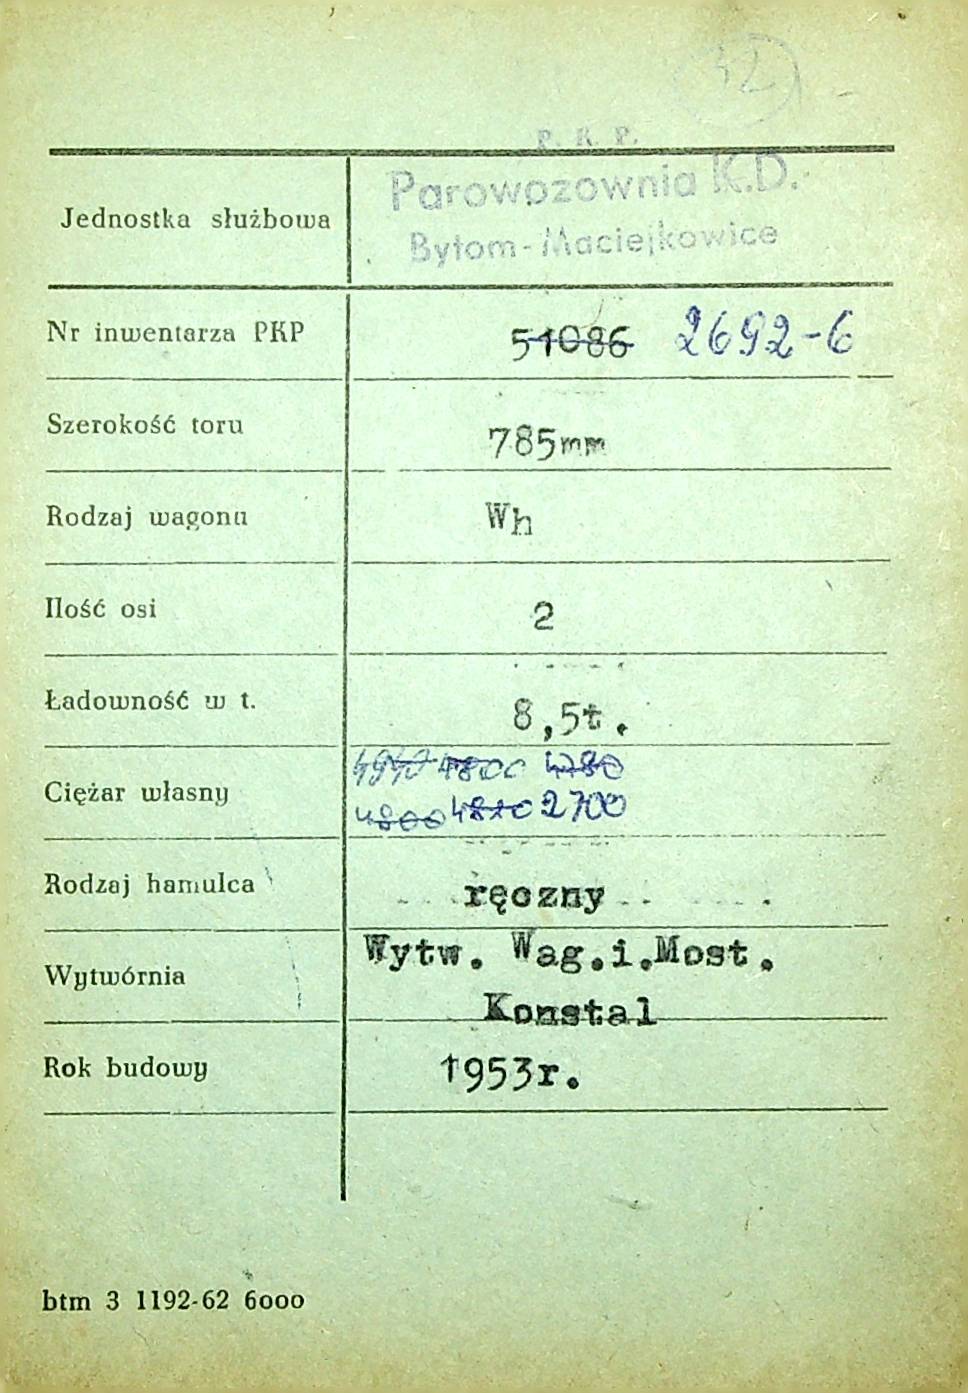 42
P. K. P.
Parowozownia K.D.
Jednostka służbowa
Bytom-Maciejkowice
Nr inwentarza PKP 51086 2692-6
Szerokość toru 785mm
Rodzaj wagonu Wh
Ilość osi 2
Ładowność w t. 8,5t.
4940 4800 4780
Ciężar własny
4800 4820 2700
Rodzaj hamulca ręczny
Wytw. Wag.i.Most.
Wytwórnia
Konstal
Rok budowy 1953r.
btm 3 1192-62 6000